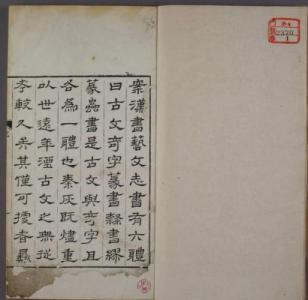 案漢書藝文志書有六體
曰古文奇字篆書隸書繆
篆蟲書是古文與奇字且
各為一體也秦灰既燼重
以世遠年湮古文之無從
考較久矣其僅可據者